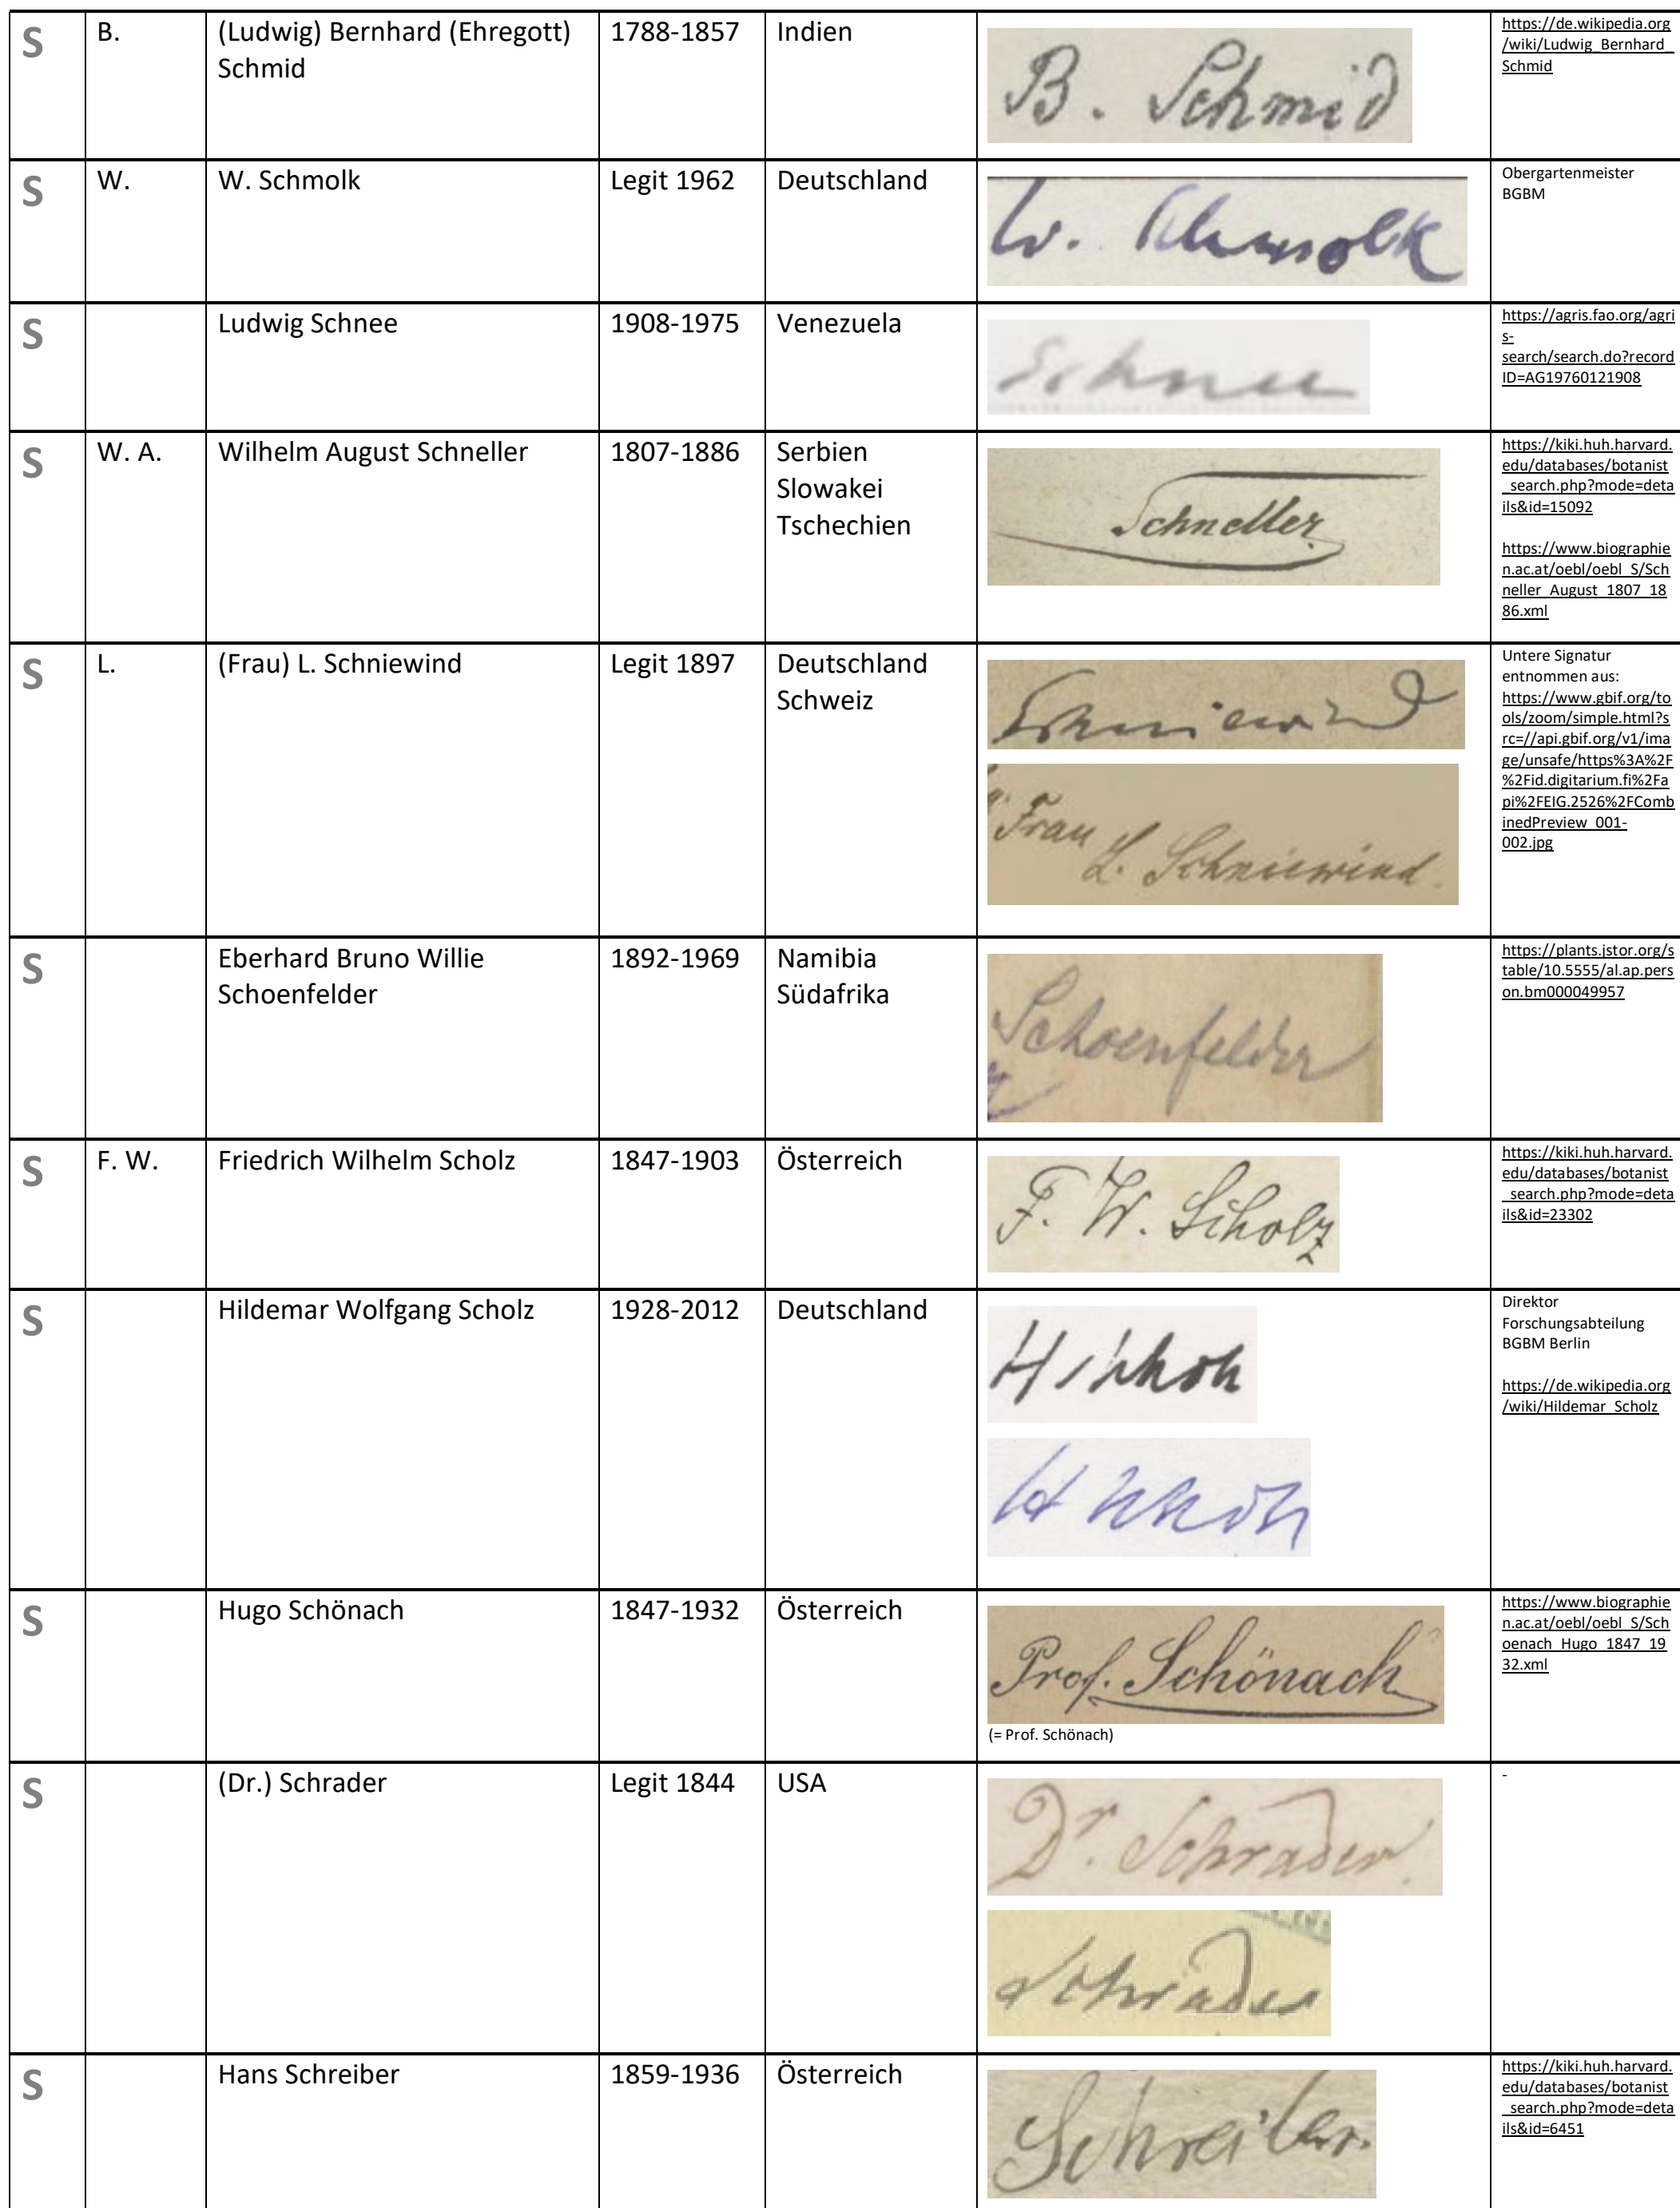 S
B.
(Ludwig) Bernhard (Ehregott)
Schmid
1788-1857
Indien
B. Schmid
https://de.wikipedia.org
/wiki/Ludwig_Bernhard_
Schmid
S
W.
W. Schmolk
Legit 1962
Deutschland
W. Schmolk
Obergartenmeister
BGBM
S
Ludwig Schnee
1908-1975
Venezuela
Schnee
https://agris.fao.org/agri
s-
search/search.do?record
ID=AG19760121908
S
W. A.
Wilhelm August Schneller
1807-1886
Serbien
Slowakei
Tschechien
Schneller
https://kiki.huh.harvard.
edu/databases/botanist
_search.php?mode=deta
ils&id=15092
https://www.biographie
n.ac.at/oebl/oebl_S/Sch
neller_August_1807_18
86.xml
S
L.
(Frau) L. Schniewind
Legit 1897
Deutschland
Schweiz
Schniewind
Frau L. Schniewind.
Untere Signatur
entnommen aus:
https://www.gbif.org/to
ols/zoom/simple.html?s
rc=//api.gbif.org/v1/ima
ge/unsafe/https%3A%2F
%2Fid.digitarium.fi%2Fa
pi%2FEIG.2526%2FComb
inedPreview_001-
002.jpg
S
Eberhard Bruno Willie
Schoenfelder
1892-1969
Namibia
Südafrika
Schoenfelder
https://plants.jstor.org/s
table/10.5555/al.ap.pers
on.bm000049957
S
F. W.
Friedrich Wilhelm Scholz
1847-1903
Österreich
F. W. Scholz
https://kiki.huh.harvard.
edu/databases/botanist
_search.php?mode=deta
ils&id=23302
S
Hildemar Wolfgang Scholz
1928-2012
Deutschland
H. Scholz
H Scholz
Direktor
Forschungsabteilung
BGBM Berlin
https://de.wikipedia.org
/wiki/Hildemar_Scholz
S
Hugo Schönach
1847-1932
Österreich
Prof. Schönach
(= Prof. Schönach)
https://www.biographie
n.ac.at/oebl/oebl_S/Sch
oenach_Hugo_1847_19
32.xml
S
(Dr.) Schrader
Legit 1844
USA
Dr. Schrader.
Schrader
-
S
Hans Schreiber
1859-1936
Österreich
Schreiber.
https://kiki.huh.harvard.
edu/databases/botanist
_search.php?mode=deta
ils&id=6451